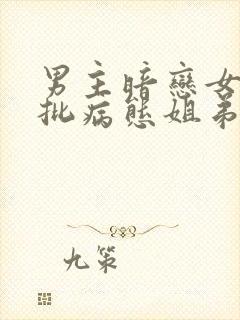 男主暗戀女
批病態姐弟
九策